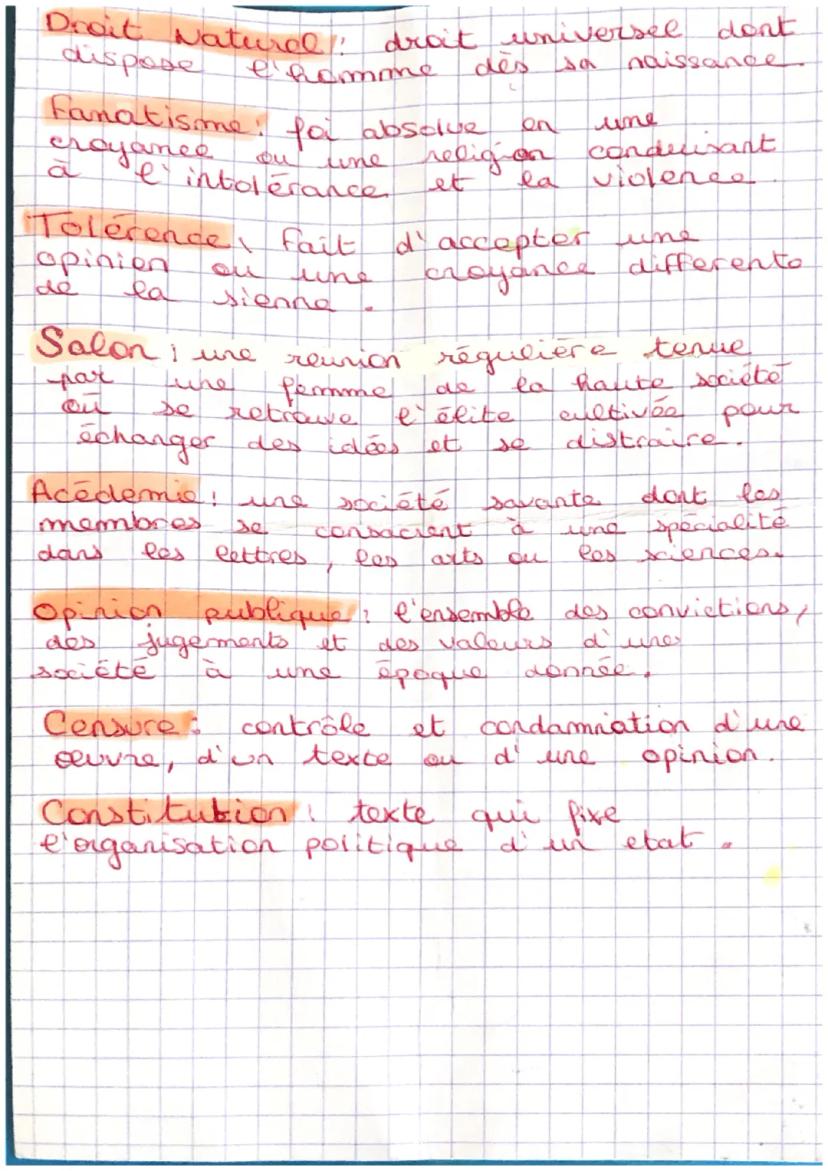 Droit Naturel : droit universel dont
dispose l'homme dès sa naissance.
Fanatisme : foi absolue en une
croyance ou une religion conduisant
à l'intolérance et la violence.
Tolérence : Fait d'accepter une
opinion ou une croyance differente
de la sienne.
Salon : une reunion régulière tenue
par une femme de la haute société
où se retrouve l'élite cultivée pour
échanger des idées et se distraire.
Acédemie : une société savante dont les
membres se consacrent à une spécialité
dans les lettres, les arts ou les sciences.
Opinion publique : l'ensemble des convictions,
des jugements et des valeurs d'une
société à une époque donnée.
Censure : contrôle et condamniation d'une
œuvre, d'un texte ou d'une opinion.
Constitution : texte qui fixe
l'organisation politique d'un etat.